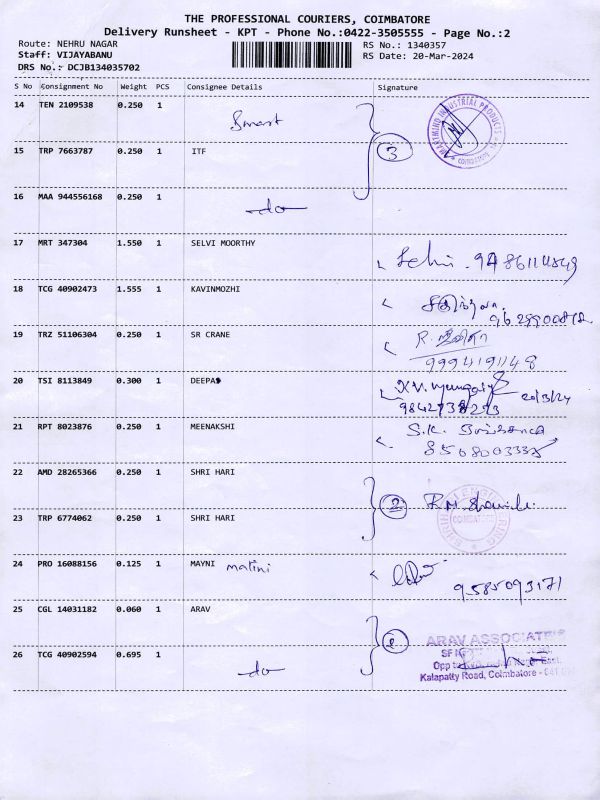 THE PROFESSIONAL COURIERS, COIMBATORE
Delivery Runsheet - KPT - Phone No.:0422-3505555 - Page No.:2
Route: NEHRU NAGAR
Staff: VIJAYABANU
DRS No.: DCJB134035702
RS No.: 1340357
RS Date: 20-Mar-2024
S No Consignment No Weight PCS Consignee Details Signature
14 TEN 2109538 0.250 1
Smart
15 TRP 7663787 0.250 1 ITF
3
SMARTWIND INDUSTRIAL PRODUCTS
COIMBATORE
16 MAA 944556168 0.250 1
-do-
17 MRT 347304 1.550 1 SELVI MOORTHY
18 TCG 40902473 1.555 1 KAVINMOZHI
19 TRZ 51106304 0.250 1 SR CRANE
9994191148
20 TSI 8113849 0.300 1 DEEPAS
20/3/24
21 RPT 8023876 0.250 1 MEENAKSHI
S.K.
22 AMD 28265366 0.250 1 SHRI HARI
2
COIMBATORE
23 TRP 6774062 0.250 1 SHRI HARI
24 PRO 16088156 0.125 1 MAYNI matini
9585093171
25 CGL 14031182 0.060 1 ARAV
2
ARAV ASSOCIATES
26 TCG 40902594 0.695 1
-do-
Kalapatty Road, Coimbatore - 641